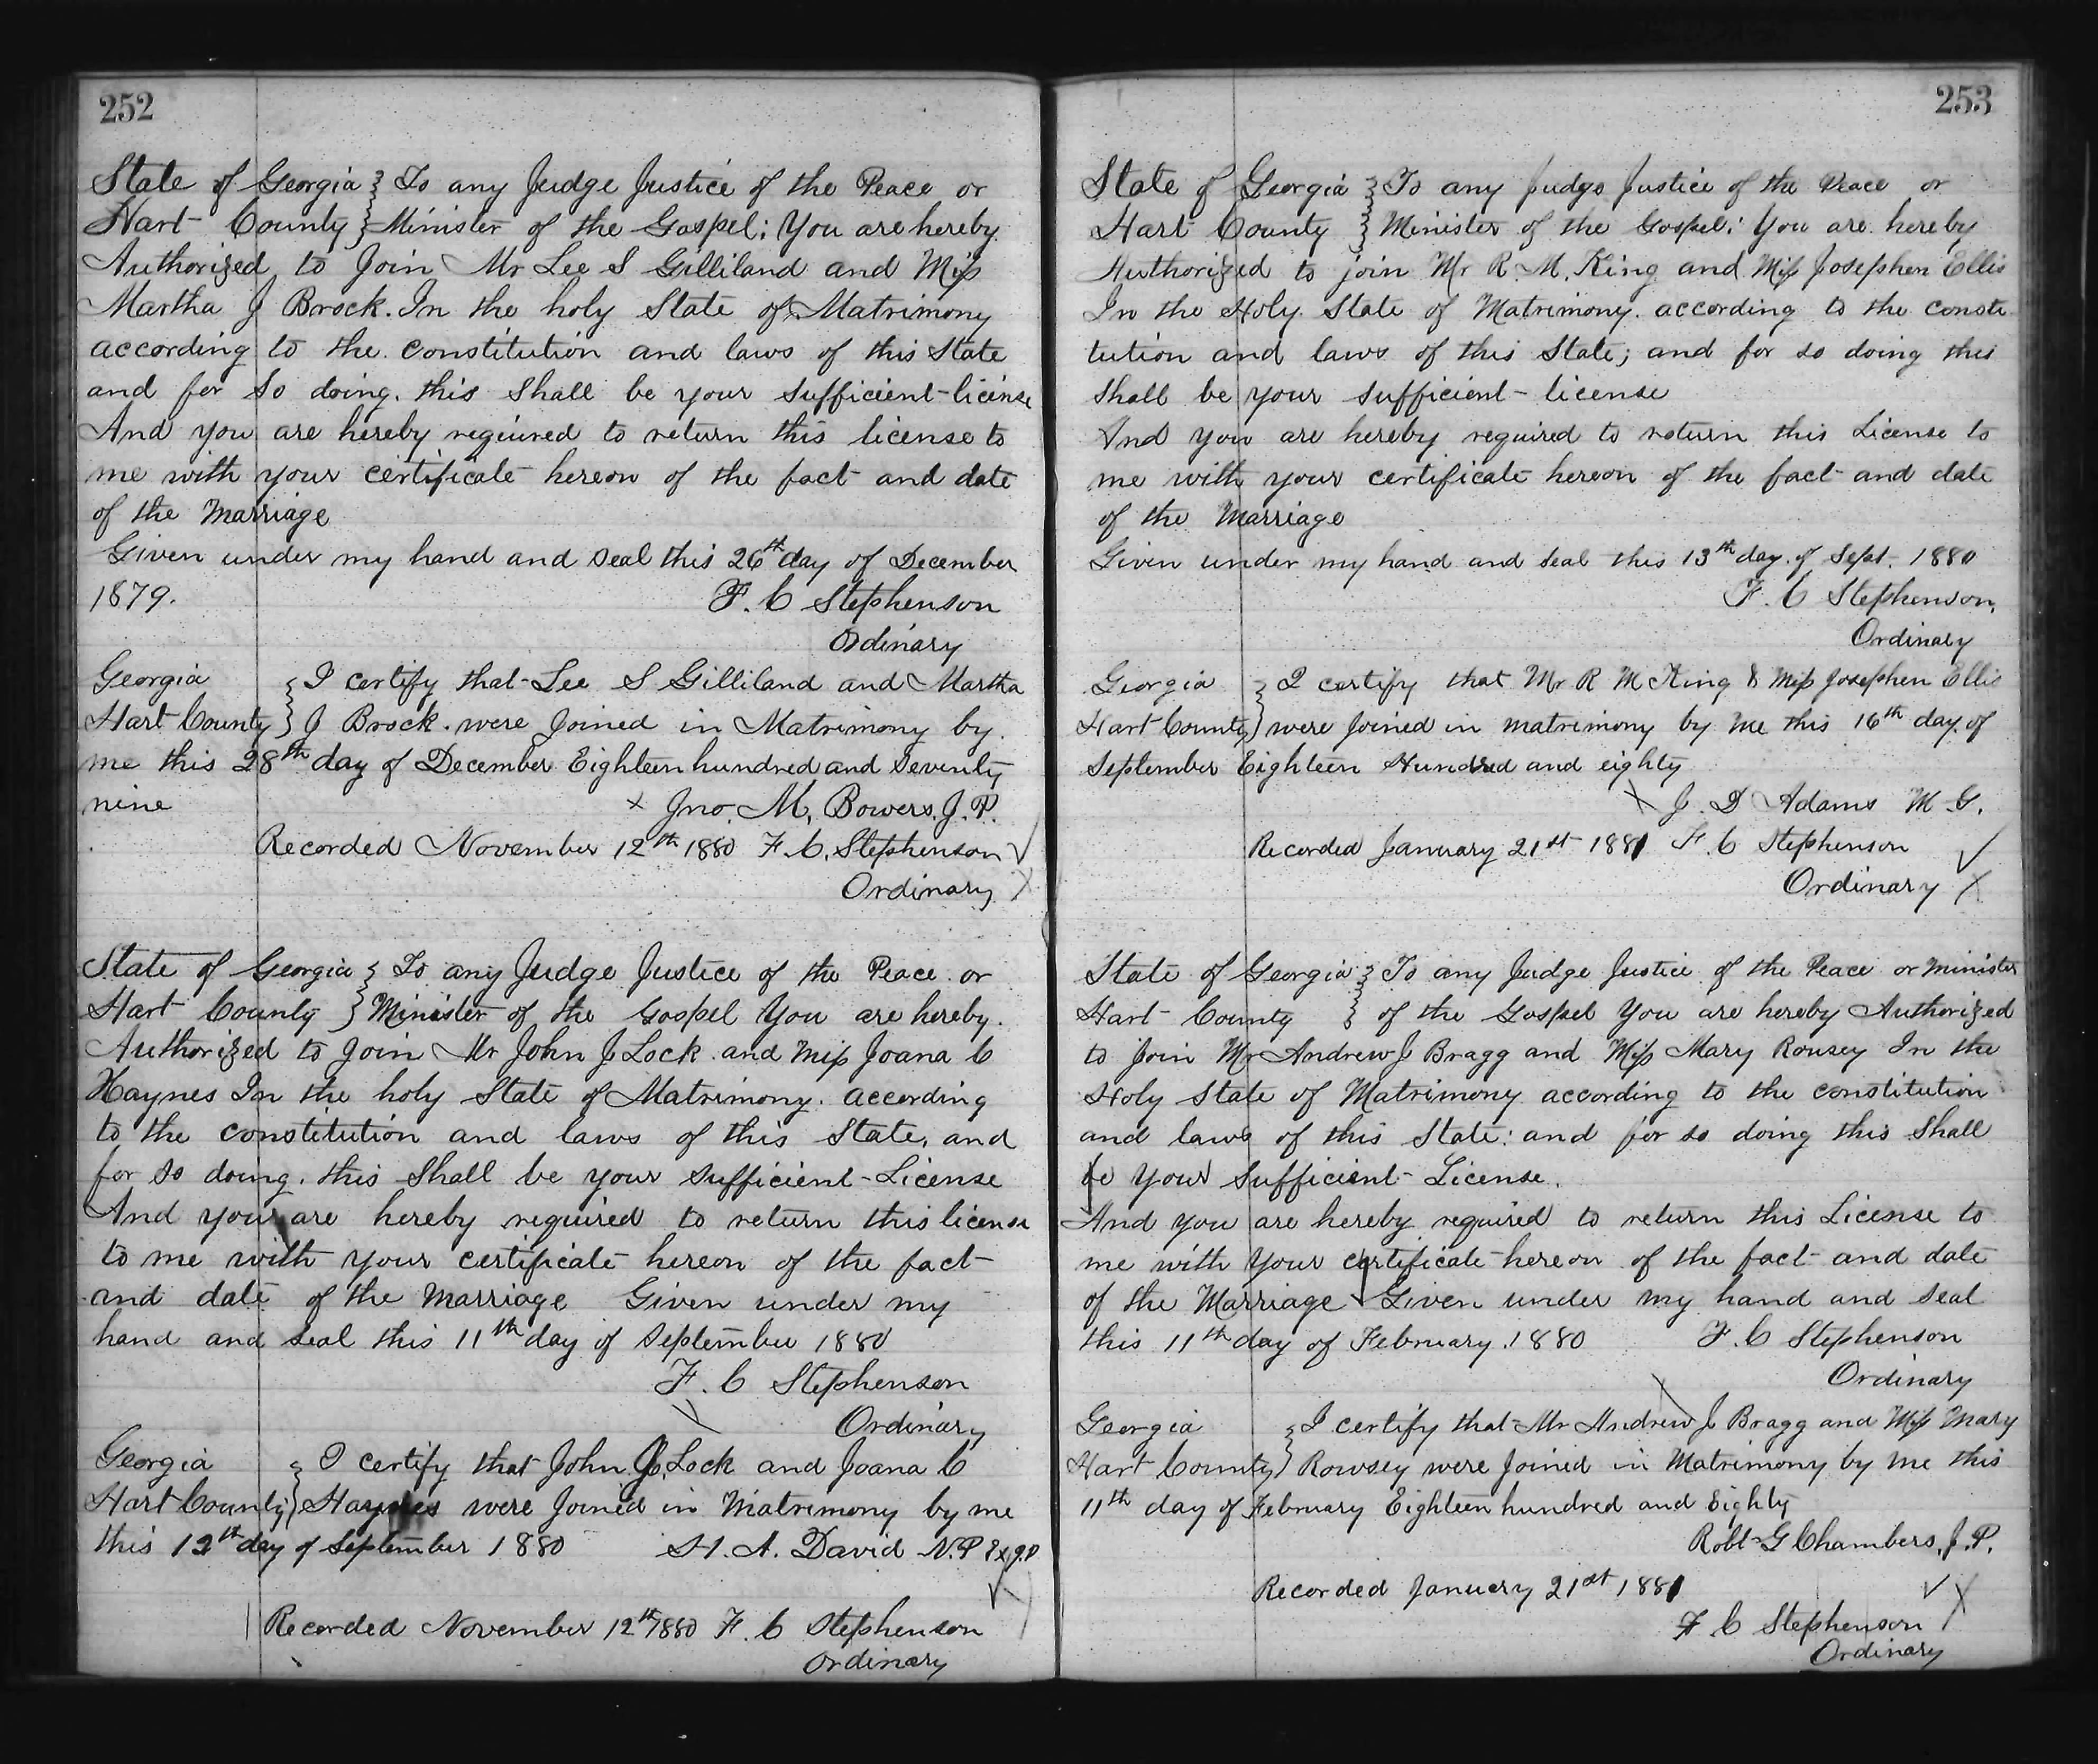 252
State of Georgia } To any Judge Justice of the Peace or
Hart County } Minister of the Gospel; You are hereby
Authorized to Join Mr Lee S Gilliland and Miss
Martha J Brock. In the holy State of Matrimony
according to the constitution and laws of this State
and for so doing. this shall be your sufficient license
And you are hereby required to return this license to
me with your certificate hereon of the fact and date
of the Marriage
Given under my hand and seal this 26th day of December
1879. F. C Stephenson
Ordinary
Georgia } I certify that Lee S Gilliland and Martha
Hart County } J Brock. were Joined in Matrimony by
me this 28th day of December Eighteen hundred and Seventy
nine x Jno. M, Bowers, J. P.
Recorded November 12th 1880 F. C, Stephenson
Ordinary
State of Georgia } To any Judge Justice of the Peace or
Hart County } Minister of the Gospel You are hereby.
Authorized to Join Mr John J Lock and Miss Joana C
Haynes In the holy State of Matrimony. according
to the constitution and laws of this State, and
for so doing. this Shall be your sufficient License
And you are hereby required to return this license
to me with your certificate hereon of the fact
and date of the Marriage Given under my
hand and seal this 11th day of September 1880
F. C Stephenson
Ordinary
Georgia } I certify that John J. Lock and Joana C
Hart County } Haynes were Joined in Matrimony by me
this 12th day of September 1880 H. A. David N.P Ex J.P
Recorded November 12th 1880 F. C Stephenson
Ordinary
253
State of Georgia } To any Judge Justice of the Peace or
Hart County } Minister of the Gospel: You are hereby
Authorized to join Mr R. M. King and Miss Josephen Ellis
In the Holy State of Matrimony. according to the consti
tution and laws of this State; and for so doing this
shall be your sufficient license
And you are hereby required to return this License to
me with your certificate hereon of the fact and date
of the Marriage
Given under my hand and seal this 13th day. of Sept. 1880
F. C Stephenson,
Ordinary
Georgia } I certify that Mr R M King & Miss Josephen Ellis
Hart County } were Joined in matrimony by me this 16th day of
September Eighteen Hundred and eighty
x J. D Adams M G.
Recorded January 21st 1881 F. C Stephenson
Ordinary
State of Georgia } To any Judge Justice of the Peace or Minister
Hart County } of the Gospel You are hereby Authorized
to Join Mr Andrew J Bragg and Miss Mary Rousey In the
Holy State of Matrimony according to the constitution
and laws of this State: and for so doing this Shall
be your Sufficient License.
And you are hereby required to return this License to
me with your certificate hereon of the fact and date
of the Marriage Given under my hand and seal
this 11th day of February. 1880 F. C Stephenson
Ordinary
Georgia } I certify that Mr Andrew J Bragg and Miss Mary
Hart County } Rowsey were Joined in Matrimony by me this
11th day of February Eighteen hundred and Eighty
Robt G Chambers, J. P.
Recorded January 21st 1881
F. C Stephenson
Ordinary